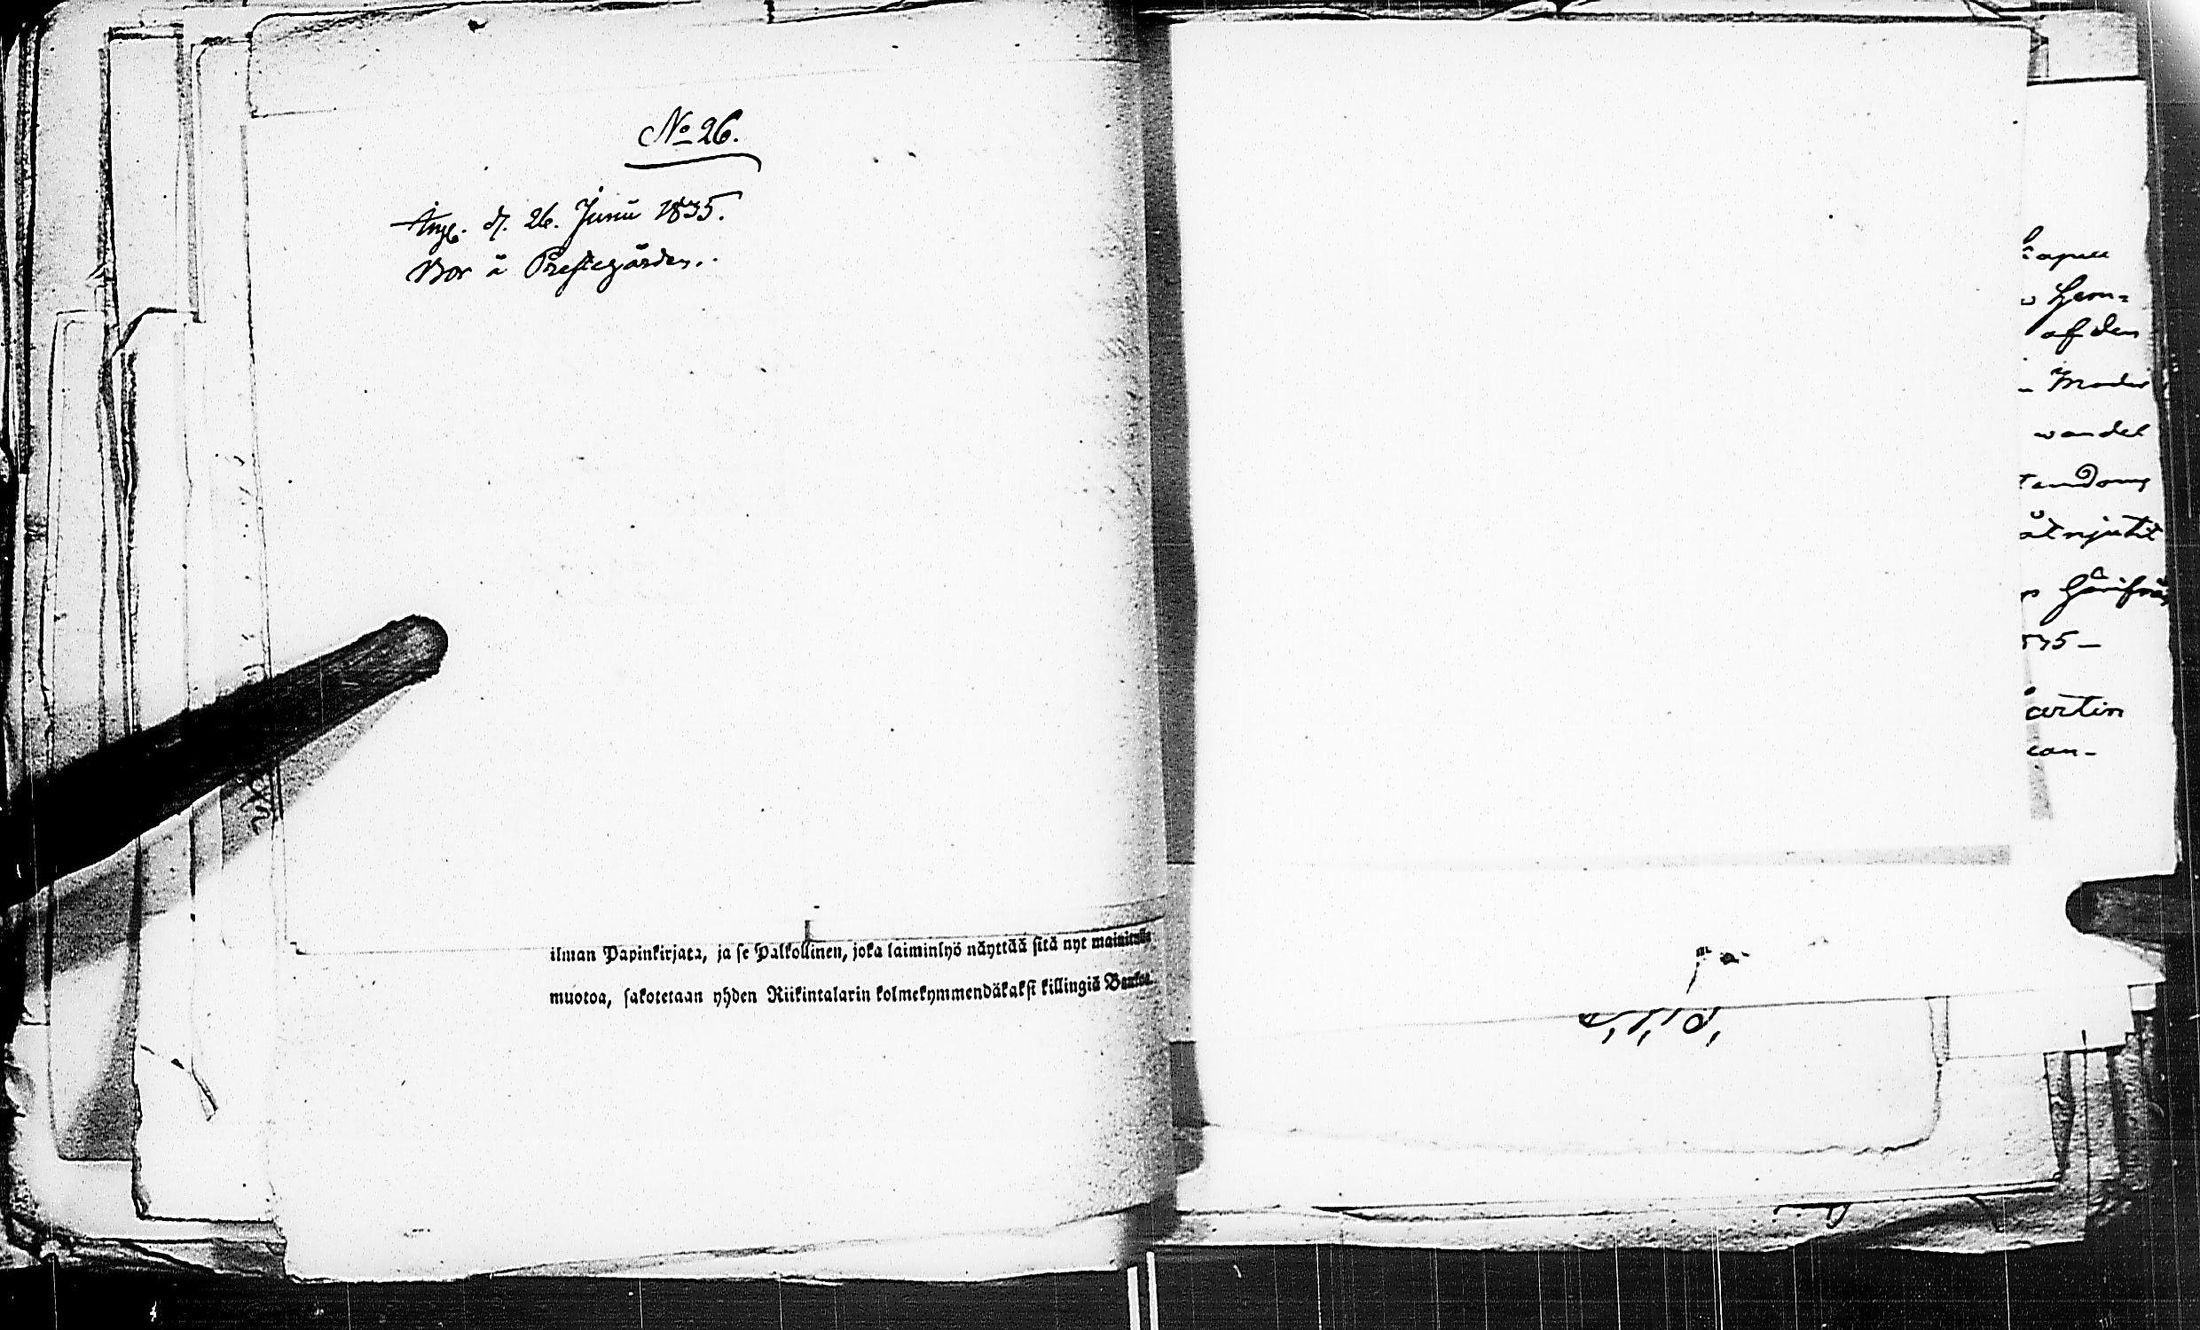 No 26.
Ang. d. 26. Junii 1835.
Bor å Prestegården.
ilman Papinkirjata, ja se Palkollinen, joka laiminlyö näyttää sitä nyt mainitulla
muotoa, sakotetaan yhden Riikintalarin kolmekymmendäkaksi killingiä Bankoa.
Hem-
af den
Moder
wandel
tendoms
åtnjutit
härifrån
35-
artin